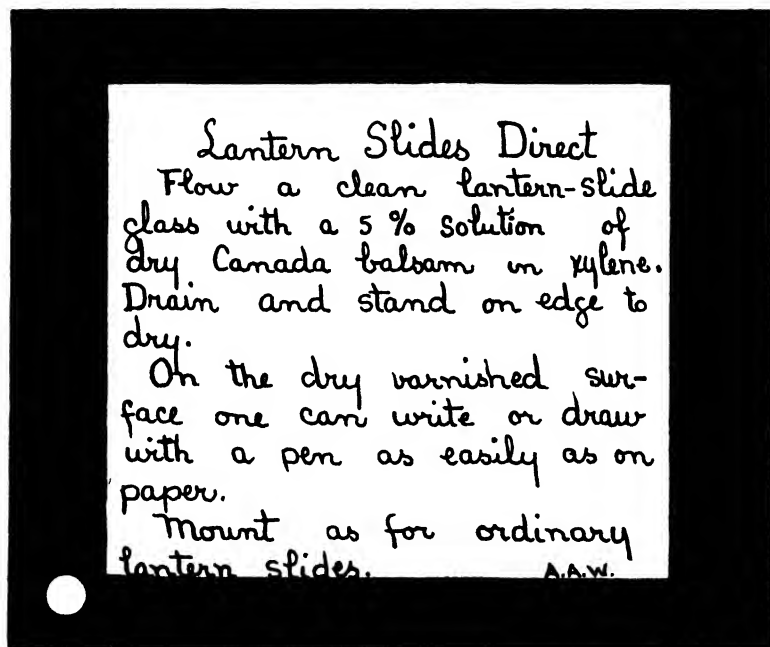 Lantern Slides Direct
Flow a clean lantern-slide
glass with a 5 % solution of
dry Canada balsam in xylene.
Drain and stand on edge to
dry.
On the dry varnished sur-
face one can write or draw
with a pen as easily as on
paper.
Mount as for ordinary
lantern slides. A.A.W.